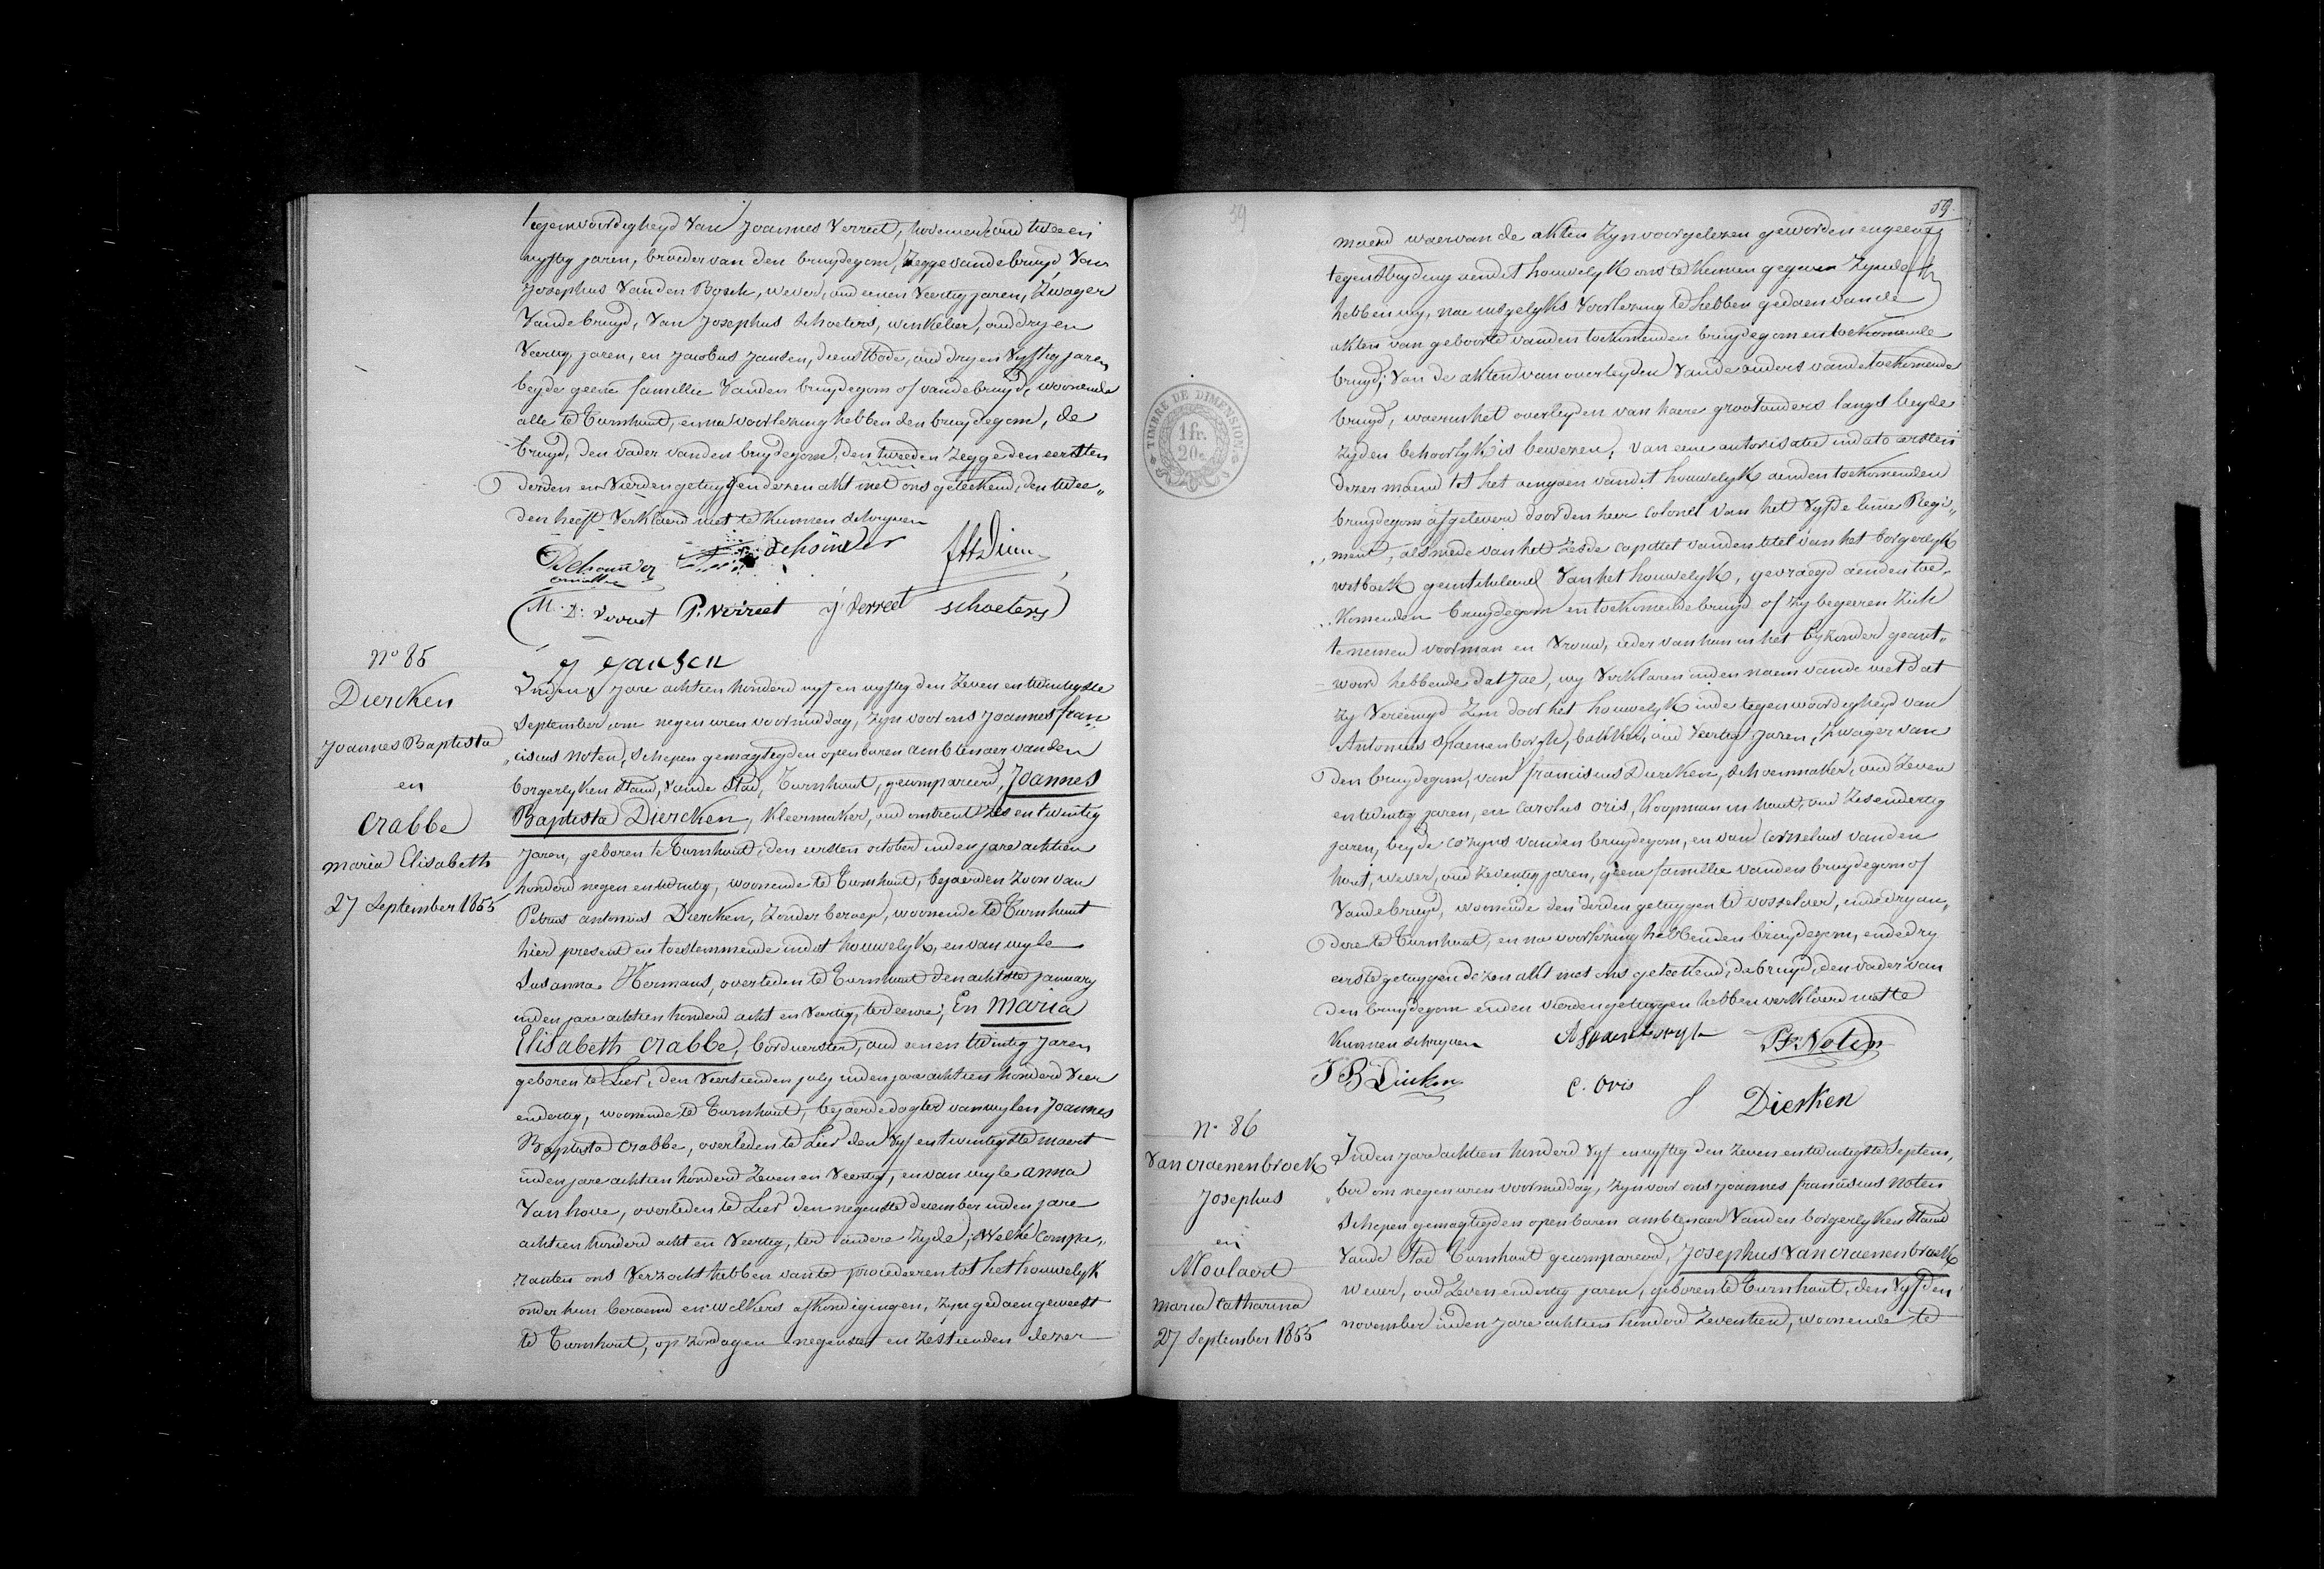 tegenwoordigheyd van Joannes Verreet, hovenier oud twee en
vyftig jaren, broeder van den bruydegom, zegge vande bruyd, van
Josephus Vanden Bosch, wever, oud eenen veertig jaren, zwager
vande bruyd, van Josephus Schoeters, winkelier, oud dry en
veertig jaren, en Jacobus Jansen, dienstbode, oud dry en vyftig jaren
beyde geene famillie vanden bruydegom of vande bruyd, woonende
alle te Turnhout, en na voorlezing hebben den bruydegom, de
bruyd, den vader vanden bruydegom, den tweeden zegge den eersten
derden en vierden getuygen dezen akt met ons geteekend, den twee„
den heeft verklaerd niet te kunnen schryven
M. D. Verreet P. Verreet J Verreet schoeters
J Jansen
No 85
Diercken
Joannes Baptista
en
Crabbe
maria Elisabeth
27 September 1855
Inden jare achtien honderd vyf en vyftig den zeven en twintigste
September om negen uren voormiddag, zyn voor ons Joannes fran„
„ciscus Noten, schepen gemagtigden openbaren ambtenaer vanden
borgerlyken stand, vande stad, Turnhout, gecompareerd, Joannes
Baptista Diercken, kleermaker, oud omtrent zes en twintig
jaren, geboren te Turnhout, den eersten october inden jare achtien
honderd negen en twintig, woonende te Turnhout, bejaerden zoon van
Petrus antonius Diercken, zonder beroep, woonende te Turnhout
hier present en toestemmende in dit houwelyk, en van wyle
Susanna Hermans, overleden te Turnhout den achtste january
inden jare achtien honderd acht en veertig, ter eenre; En Maria
Elisabeth Crabbe, borduerster, oud een en twintig jaren
geboren te Lier, den veertienden july inden jare achtien honderd vier
endertig, woonende te Turnhout, bejaerde dogter van wylen Joannes
Baptista Crabbe, overleden te Lier den vyf en twintigste maert
inden jare achtien honderd zeven en veertig, en van wyle anna
Van hove, overleden te Lier den negenste december inden jare
achtien honderd acht en veertig, ter andere zyde; Welke compa„
ranten ons verzocht hebben van te procederen tot het houwelyk
onder hun beraemd en welkers afkondigingen, zyn gedaen geweest
te Turnhout, op zondagen negensten en zestienden dezer
59
59.
maend waervan de akten zyn voorgelezen geworden en geene
tegenstryding aen dit houwelyk ons te kennen gegeven zynde
hebben wy, nae insgelyks voorlezing te hebben gedaen vande
akten van geboorte vanden toekomenden bruydegom en toekomende
bruyd; van de akten van overleyden vande ouders vande toekomende
bruyd, waerin het overleyden van haere grootouders langs beyde
zyden behoorlyk is bewezen, van eene autorisatie in dato eersten
dezer maend tot het aengaen van dit houwelyk aenden toekomenden
bruydegom afgeleverd door den heer Colonel van het vyfde linie Regi„
„ment, alsmede van het zesde capittel vanden titel van het borgerlyk
wetboek geintituleerd van het houwelyk, gevraegd aenden toe„
„komenden bruydegom en toekomende bruyd of zy begeeren zich
te nemen voor man en vrouw, ieder van hun in het byzonder geant„
woord hebbende dat jae, wy verklaren inden naem vande wet dat
zy vereenigd zyn door het houwelyk inde tegenwoordigheyd van
Antonius Spaenenborgh, bakker, oud veertig jaren, zwager van
den bruydegom, van franciscus Diercken, schoenmaker, oud zeven
en twintig jaren, en Carolus Oris, koopman in hout, oud zes endertig
jaren, beyde cozyns vanden bruydegom, en van Cornelius vanden
hout, wever, oud zeventig jaren, geene famillie vanden bruydegom of
vande bruyd, woonende den derden getuygen te vosselaer, en de dry an„
dere te Turnhout, en na voorlezing hebben den bruydegom, en de dry
eerste getuygen dezen akt met ons geteekend, de bruyd, den vader van
den bruydegom en den vierden getuygen hebben verklaerd niet te
kunnen schryven
J B Dierken C. Oris Dierken
TIMBRE DE DIMENSION.
1 fr.
20 c.
No 86
Van craenenbroek
Josephus
en
Moulaert
maria Catharina
27 September 1855
Inden jare achtien honderd vyf en vyftig den zeven en twintigste Septem„
„ber om negen uren voormiddag, zyn voor ons Joannes franciscus Noten
Schepen gemagtigden openbaren ambtenaer vanden borgerlyken stand
vande stad Turnhout gecompareerd, Josephus Van craenenbroek
wever, oud zeven endertig jaren, geboren te Turnhout, den vyfden
november inden jare achtien honderd zeventien, woonende te